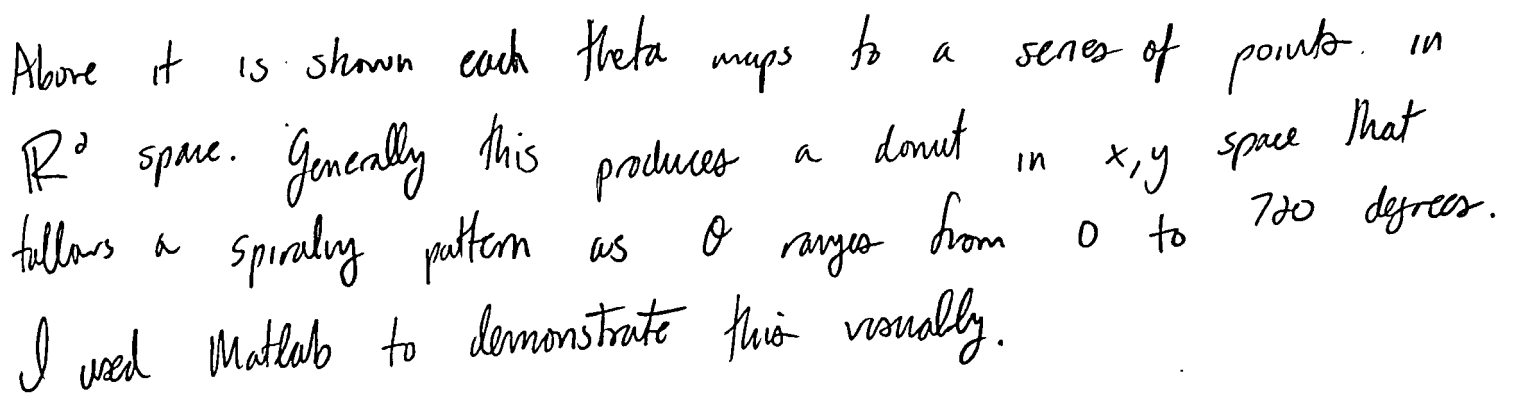 Above it is shown each theta maps to a series of points in
ℝ² space. Generally this produces a donut in x,y space that
follows a spiraly pattern as θ ranges from 0 to 720 degrees.
I used Matlab to demonstrate this visually.